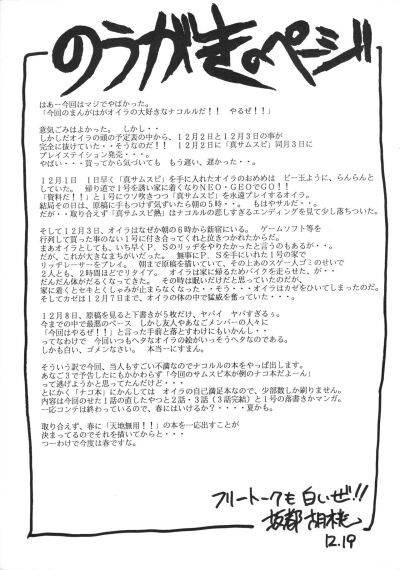 のうがきのページ!!
はあー今回はマジでやばかった。
「今回のまんがはがオイラの大好きなナコルルだ!! やるぜ!!」
意気ごみはよかった。 しかし・・
しかしだオイラの頭の予定表の中から、12月2日と12月3日の事が
完全に抜けていた・・そうなのだ!! 12月2日「真サムスピ」同月3日に
プレイステイション発売・・・。
やばい・・・買ってから気づいても もう遅い、遅かった・・。
12月1日 1日早くて「真サムスピ」を手に入れたオイラのおめめは ビー玉ように、らんらんと
していた。 帰り道で1号を誘い家に着くなりNEO・GEOでGO!!
「資料だ!!」と1号にウソ吹きつつ「真サムスピ」を永遠プレイするオイラ。
結局その日は、原稿に手もつけず気ずいたら朝の5時・・。 もはやサルだ・・。
だが・・取り合えず「真サムスピ熱」はナコルルの悲しすぎるエンディングを見て少し落ちついた。
そして12月3日、オイラはなぜか朝の6時から新宿にいる。 ゲームソフト等を
行列して買った事のない1号に付き合ってくれと泣きつかれたからだ。
まあオイラとしても、いち早くP.Sのリッヂをやりたかったと言うのもあるが・・。
だが、これが大きなまちがいだった。 無事にP.Sを手にいれた1号の家で
リッヂレーサーをプレイ。 朝まで原稿を描いていて、その上あのスゲー人ゴミのせいで
2人とも、2時間ほどでリタイア。 オイラは家に帰るためバイクを走らせた、が・・
だんだん体がだるくなってきた。 その時は眠いだけだと思っていたのだが、
家に着くとセキとくしゃみが止まらなくなった・・そう・・・オイラはカゼをひいてしまったのだ。
そしてカゼは12月7日まで、オイラの体の中で猛威を奮っていた・・・。
12月8日、原稿を見ると下書きが5枚だけ、ヤバイ ヤバすぎるぅ。
今までの中で最悪のペース しかし友人やあなごメンバーの人々に
「今回はやるぜ!!」と言った手前と落とすわけにもいかんし・・
ってなわけで 今回いつもヘタなオイラの絵がいっそうヘタなのである。
しかも白い、ゴメンなさい。 本当ーにすまん。
そういう訳で今回、当人もすごい不満なのでナコルルの本をやっぱ出します。
あなご3で予告したにもかかわらず「今回のサムスピ本が例のナコ本だよーん」
って逃げようかと思ってたんだけど・・・
とにかく「ナコ本」にかんしては オイラの自己満足本なので、少部数しか刷りません。
内容は今回のせた1話の直したやつと2話・3話(3話完結)と1号の落書きかマンガ。
一応コンテは終わっているので、春にはいけるか?・・・・夏かも。
取り合えず、春に「天地無用!!」の本を一応出すことが
決まってるのでそれを描いてからと・・・
つーわけで今度は春ですな。
フリートークも白いぜ!!
12.19